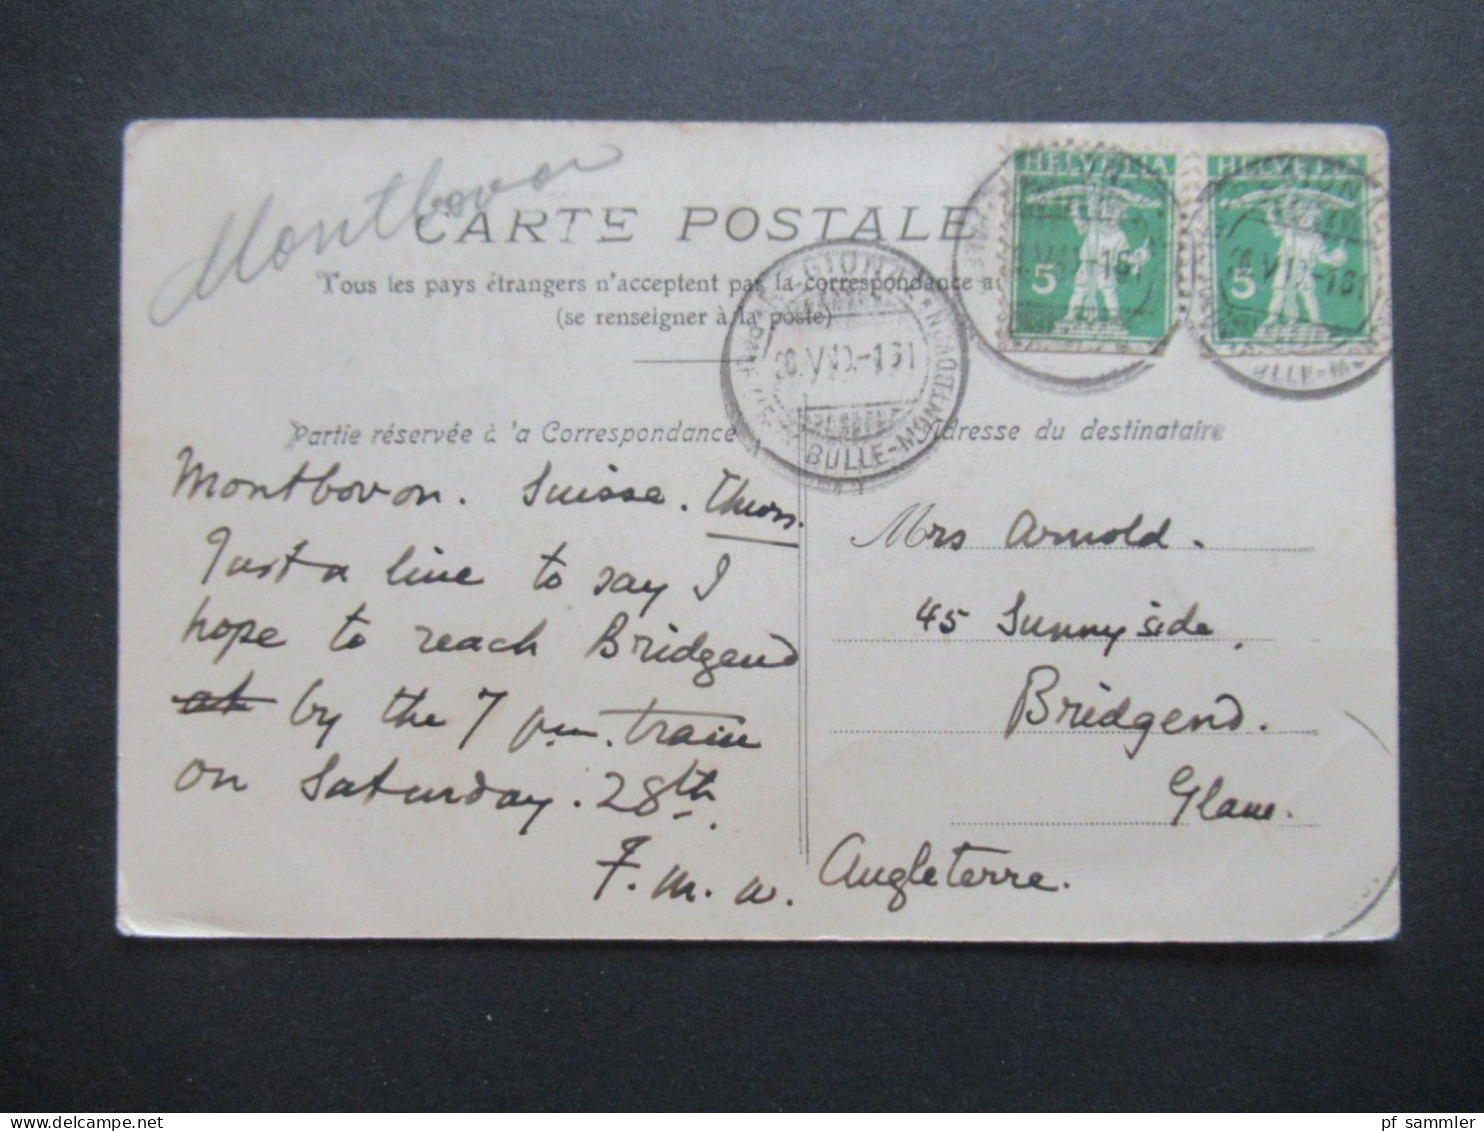 Montbovon
CARTE POSTALE
Tous les pays étrangers n'acceptent pas la correspondance au
(se renseigner à la poste)
Partie réservée à 'a Correspondance
Adresse du destinataire
HELVETIA
5
HELVETIA
5
BULLE-MONTBOVON
Montbovon. Suisse. Thurs.
Just a line to say I
hope to reach Bridgend
at by the 7 pm. train
on Saturday. 28th.
F. M. A.
Mrs Arnold.
45 Sunnyside,
Bridgend.
Glam.
Angleterre.
pf_sammler